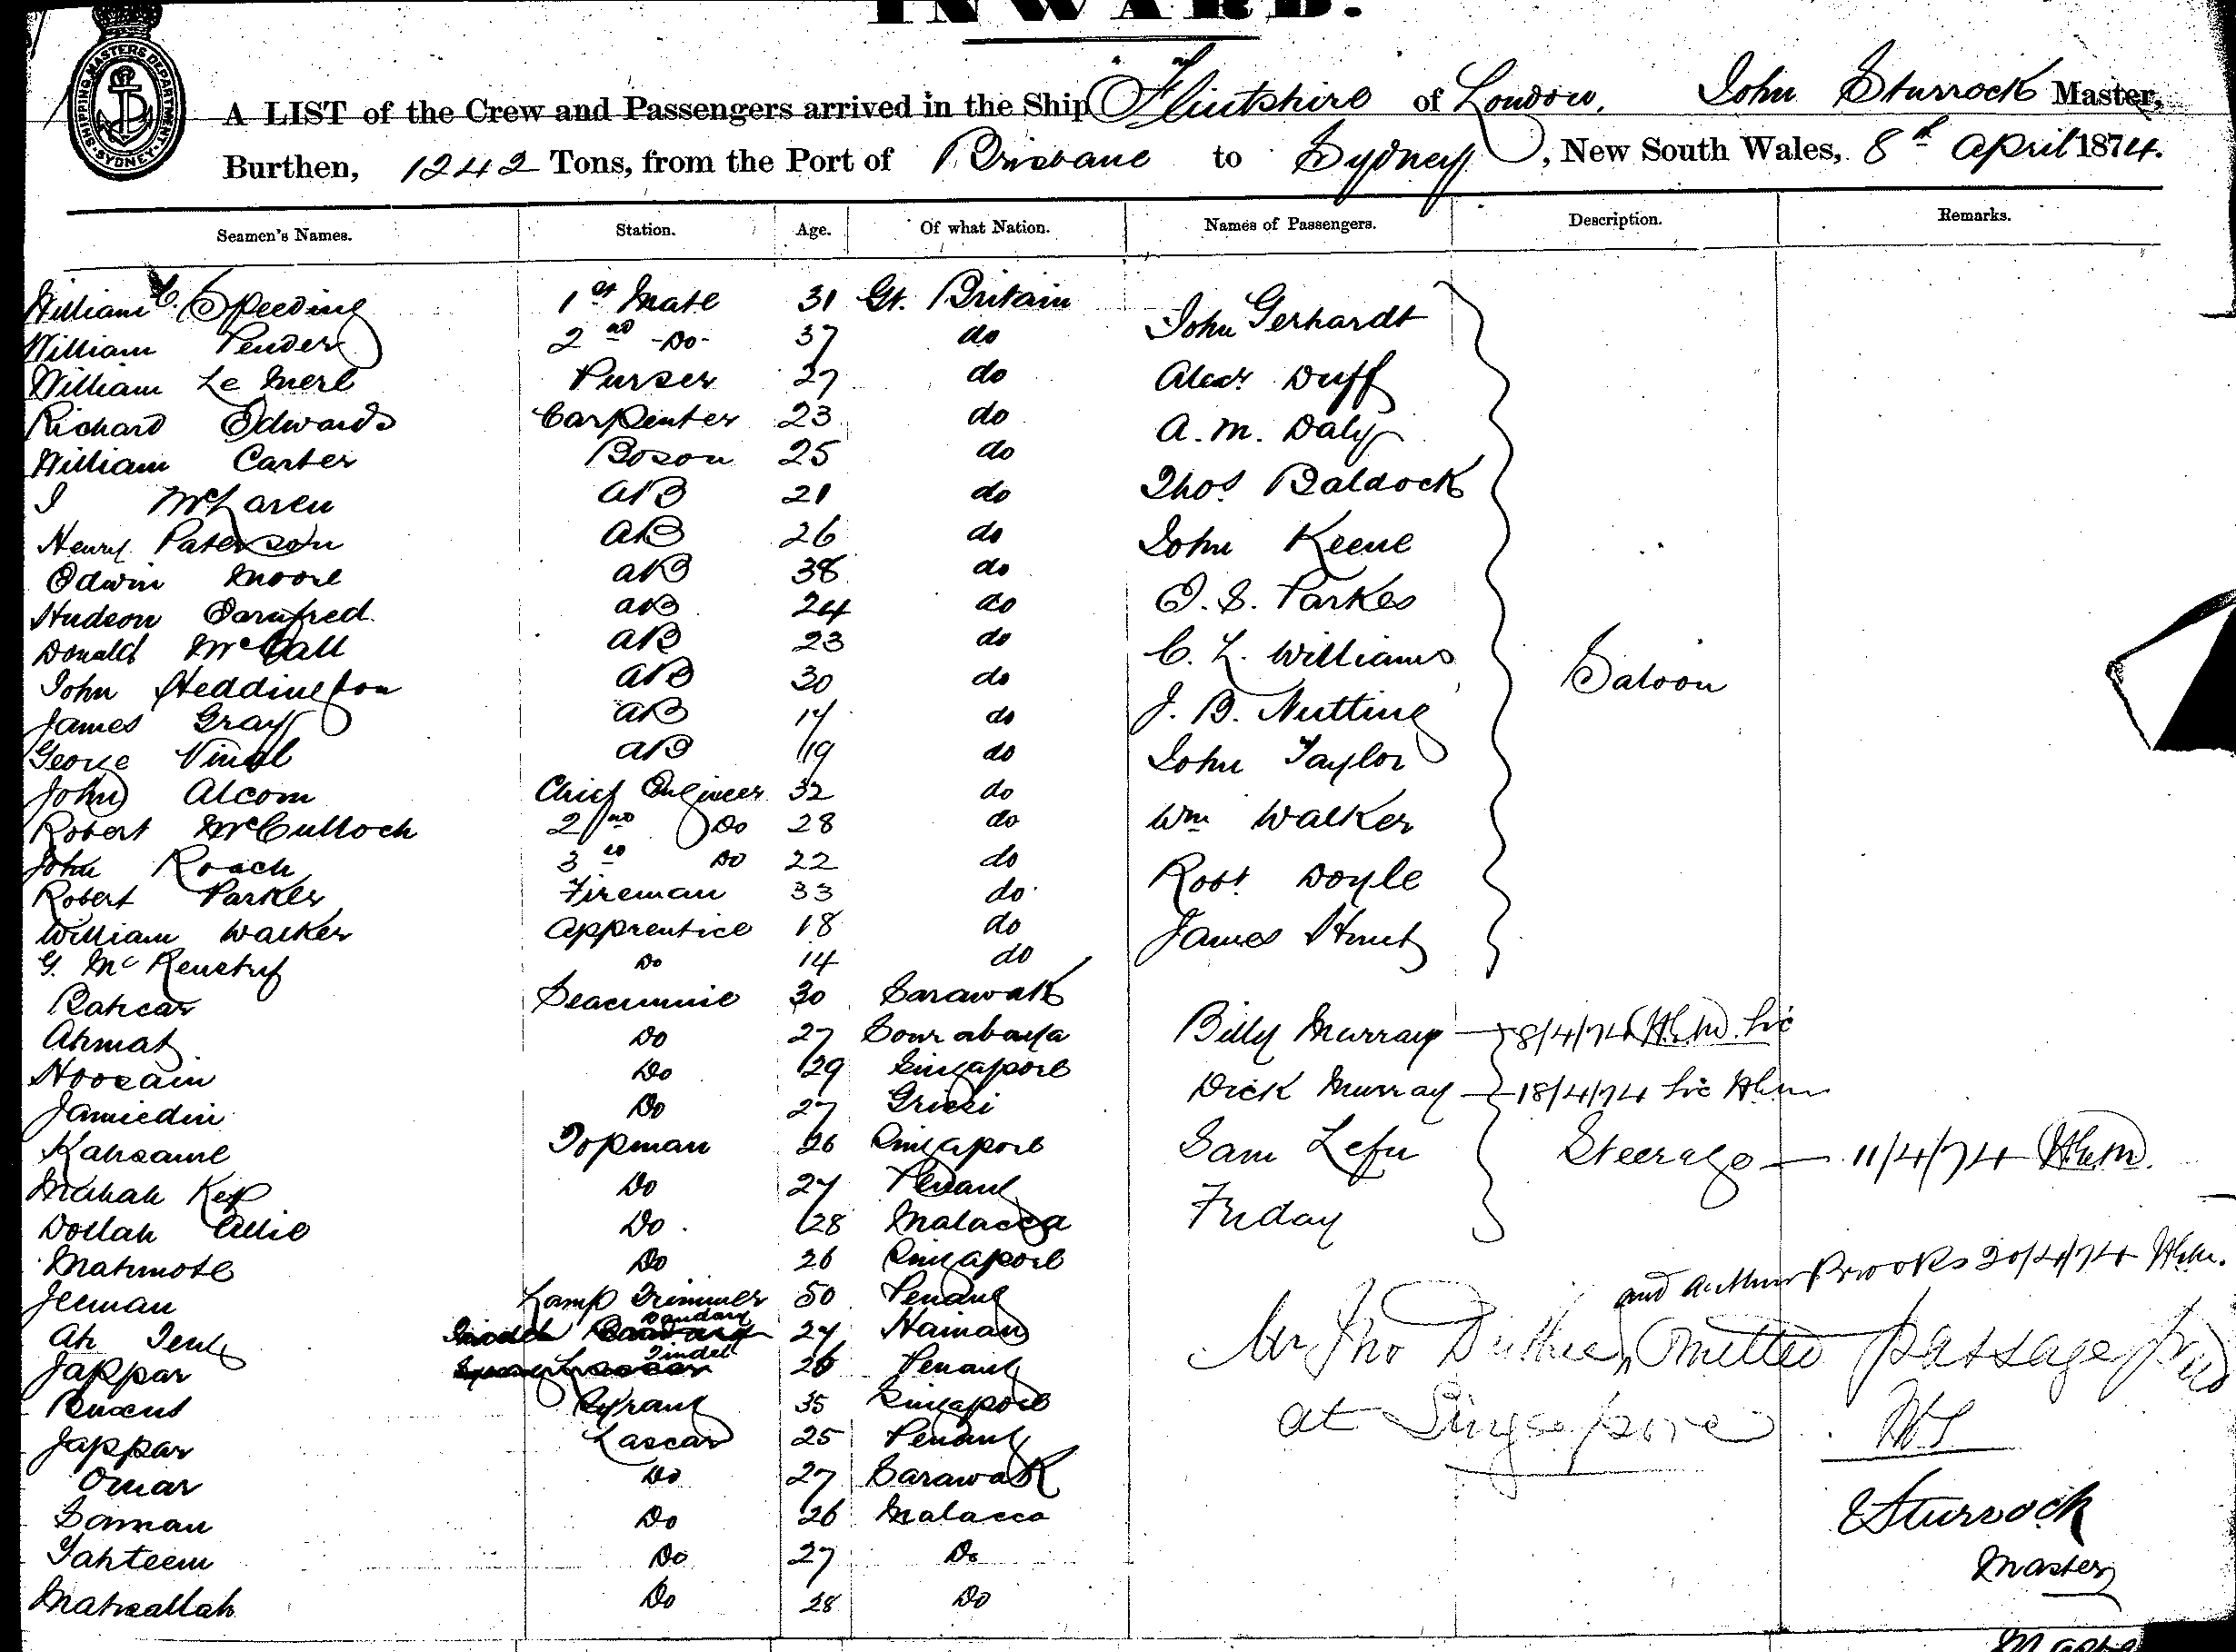 INWARD.
SHIPPING MASTERS DEPARTMENT SYDNEY
A LIST of the Crew and Passengers arrived in the Ship Flintshire of London, John Sturrock Master,
Burthen, 1242 Tons, from the Port of Brisbane to Sydney, New South Wales, 8th April 1874.
Seamen's Names. Station. Age. Of what Nation. Names of Passengers. Description. Remarks.
William C. Speeding 1st Mate 31 Gt. Britain John Gerhardt
William Pender 2nd -Do- 37 do
William Le Merl Purser 27 do Alexr Duff
Richard Edwards Carpenter 23 do A. M. Daly
William Carter Boson 25 do
I McLaren AB 21 do Thos Baldock
Henry Paterson AB 26 do John Keene
Edwin Moore AB 38 do
Hudson AB 24 do E. S. Parkes
Donald McCall AB 23 do C. L. Williams
John Heddington AB 30 do Saloon
James Gray AB 17 do J. B. Nutting
George Vinal AB 19 do John Taylor
John Alcom Chief Engineer 32 do
Robert McCulloch 2nd Do 28 do Wm Walker
John Roach 3rd Do 22 do
Robert Parker Fireman 33 do Robt Doyle
William Walker Apprentice 18 do James Hunt
G. Mc Do 14 do
Bahcar Seacunnie 30 Sarawak
Ahmat Do 27 Sourabaya Billy Murray 8/4/74
Hoosain Do 29 Singapore
Jamiedin Do 27 Dick Murray 18/4/74
Kahsame Topman 26 Singapore Sam Lefu Steerage 11/4/74
Mahah Kep Do 27 Penang
Dollah Allie Do 28 Malacca Friday
Mahmote Do 26 Singapore
Jeeman Lamp Trimmer 50 Penang and Arthur Brooks 20/4/74
Ah Teng Bandary 27 Hainan
Jappar Tindel 26 Penang Mr Jno Duthie, Omitted passage paid
Syrang 35 Singapore at Singapore
Jappar Lascar 25 Penang
Omar Do 27 Sarawak
Saman Do 26 Malacca Sturrock
Tahteem Do 27 Do Master
Mahsallah Do 28 Do